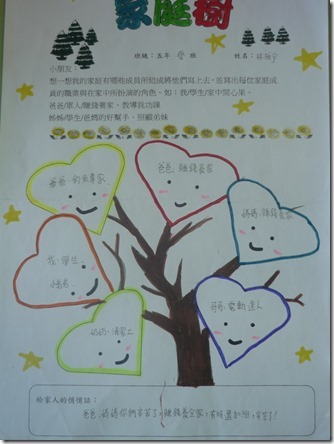 家庭樹
班級：五年 班 姓名：
小朋友
想一想我的家庭有哪些成員所組成將他們寫上去，並寫出每位家庭成
員的職業與在家中所扮演的角色。如：我/學生/家中開心果、
爸爸/軍人/賺錢養家、教導我功課
姊姊/學生/爸媽的好幫手、照顧弟妹
爸爸、賺錢養家
爺爺、釣魚專家
媽媽、賺錢養家
我、學生、
奶奶、清潔工
哥哥、電動達人
給家人的悄悄話：
爸爸、媽媽你們辛苦了，賺錢養全家，